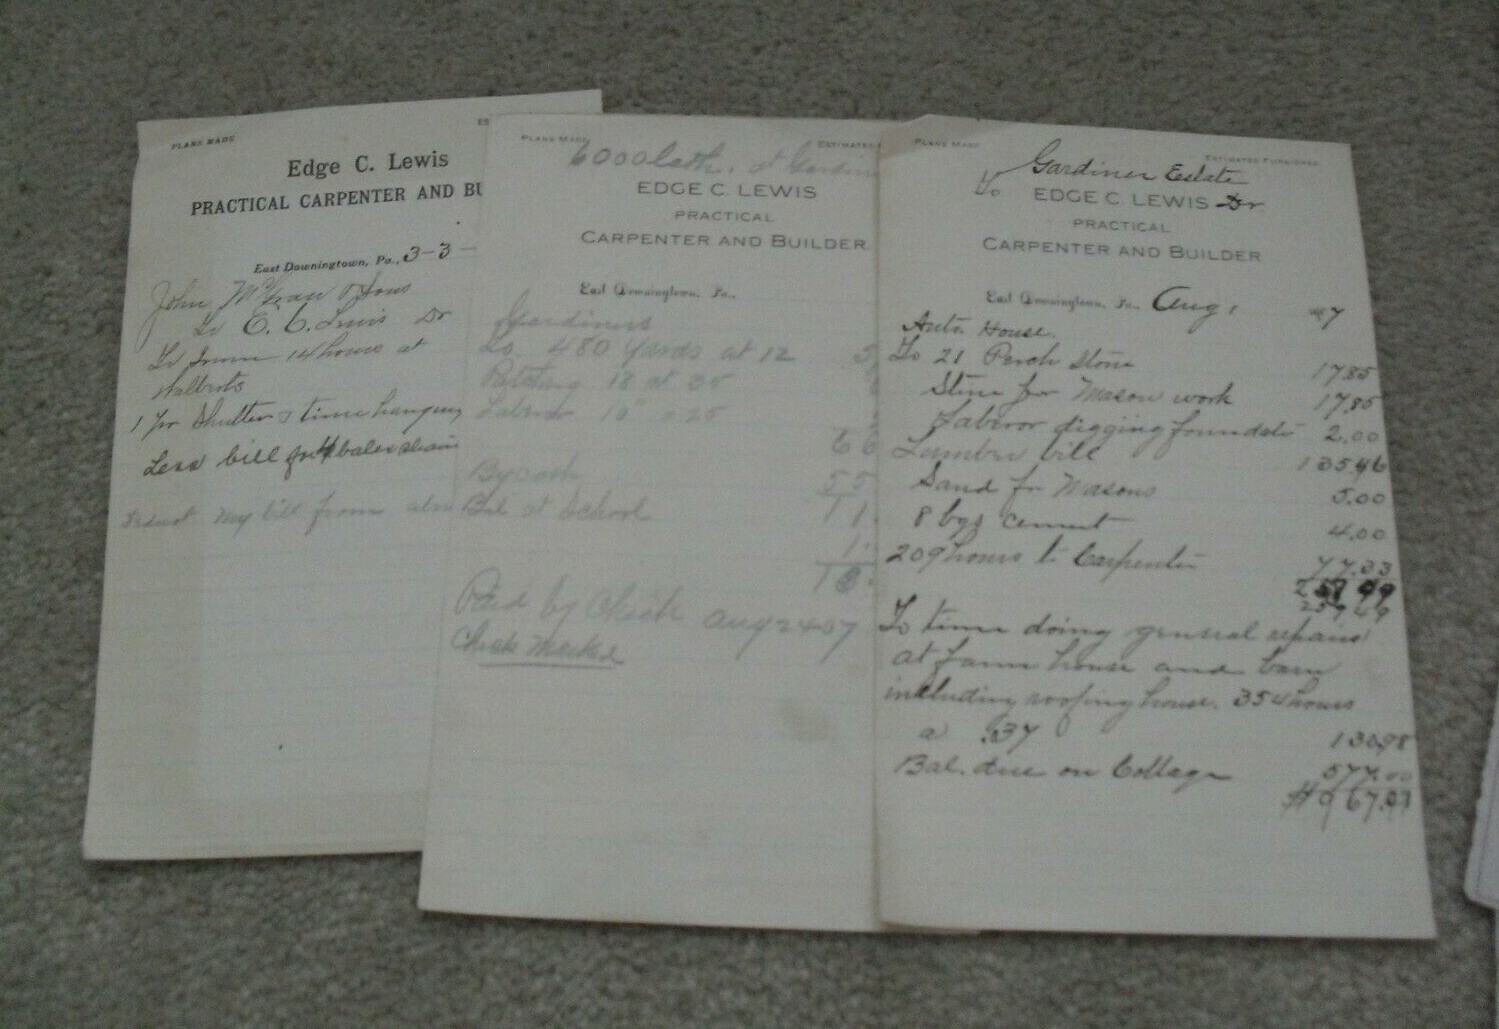 PLANS MADE
Edge C. Lewis
PRACTICAL CARPENTER AND BU
East Downingtown, Pa., 3-3-
John & Sons
To E. C. Lewis Dr
To 14 hours at
1 pr Shutter & time hanging
Less bill for 4 bales
my bill from
PLANS MADE
ESTIMATES
6000 lath. at Gardin
EDGE C. LEWIS
PRACTICAL
CARPENTER AND BUILDER
East Downingtown, Pa.,
Gardiners
To 480 Yards at 12
Patching 18 at 35
66
By cash
55
Bal at School
11
Paid by Check Aug 24 07
Check Marked
PLANS MADE
ESTIMATES FURNISHED
Gardiner Estate
To EDGE C. LEWIS Dr
PRACTICAL
CARPENTER AND BUILDER
East Downingtown, Pa., Aug, 7
Auto House.
To 21 Perch Stone 17.85
Stone for Mason work 17.85
Labor for digging foundat 2.00
Lumber bill 135.46
Sand for Masons 5.00
8 bgs cement 4.00
209 hours to Carpenter 77.33
To time doing general repairs
at farm house and barn
including roofing house. 354 hours
a .37 130.98
Bal. due on Cottage 577.00